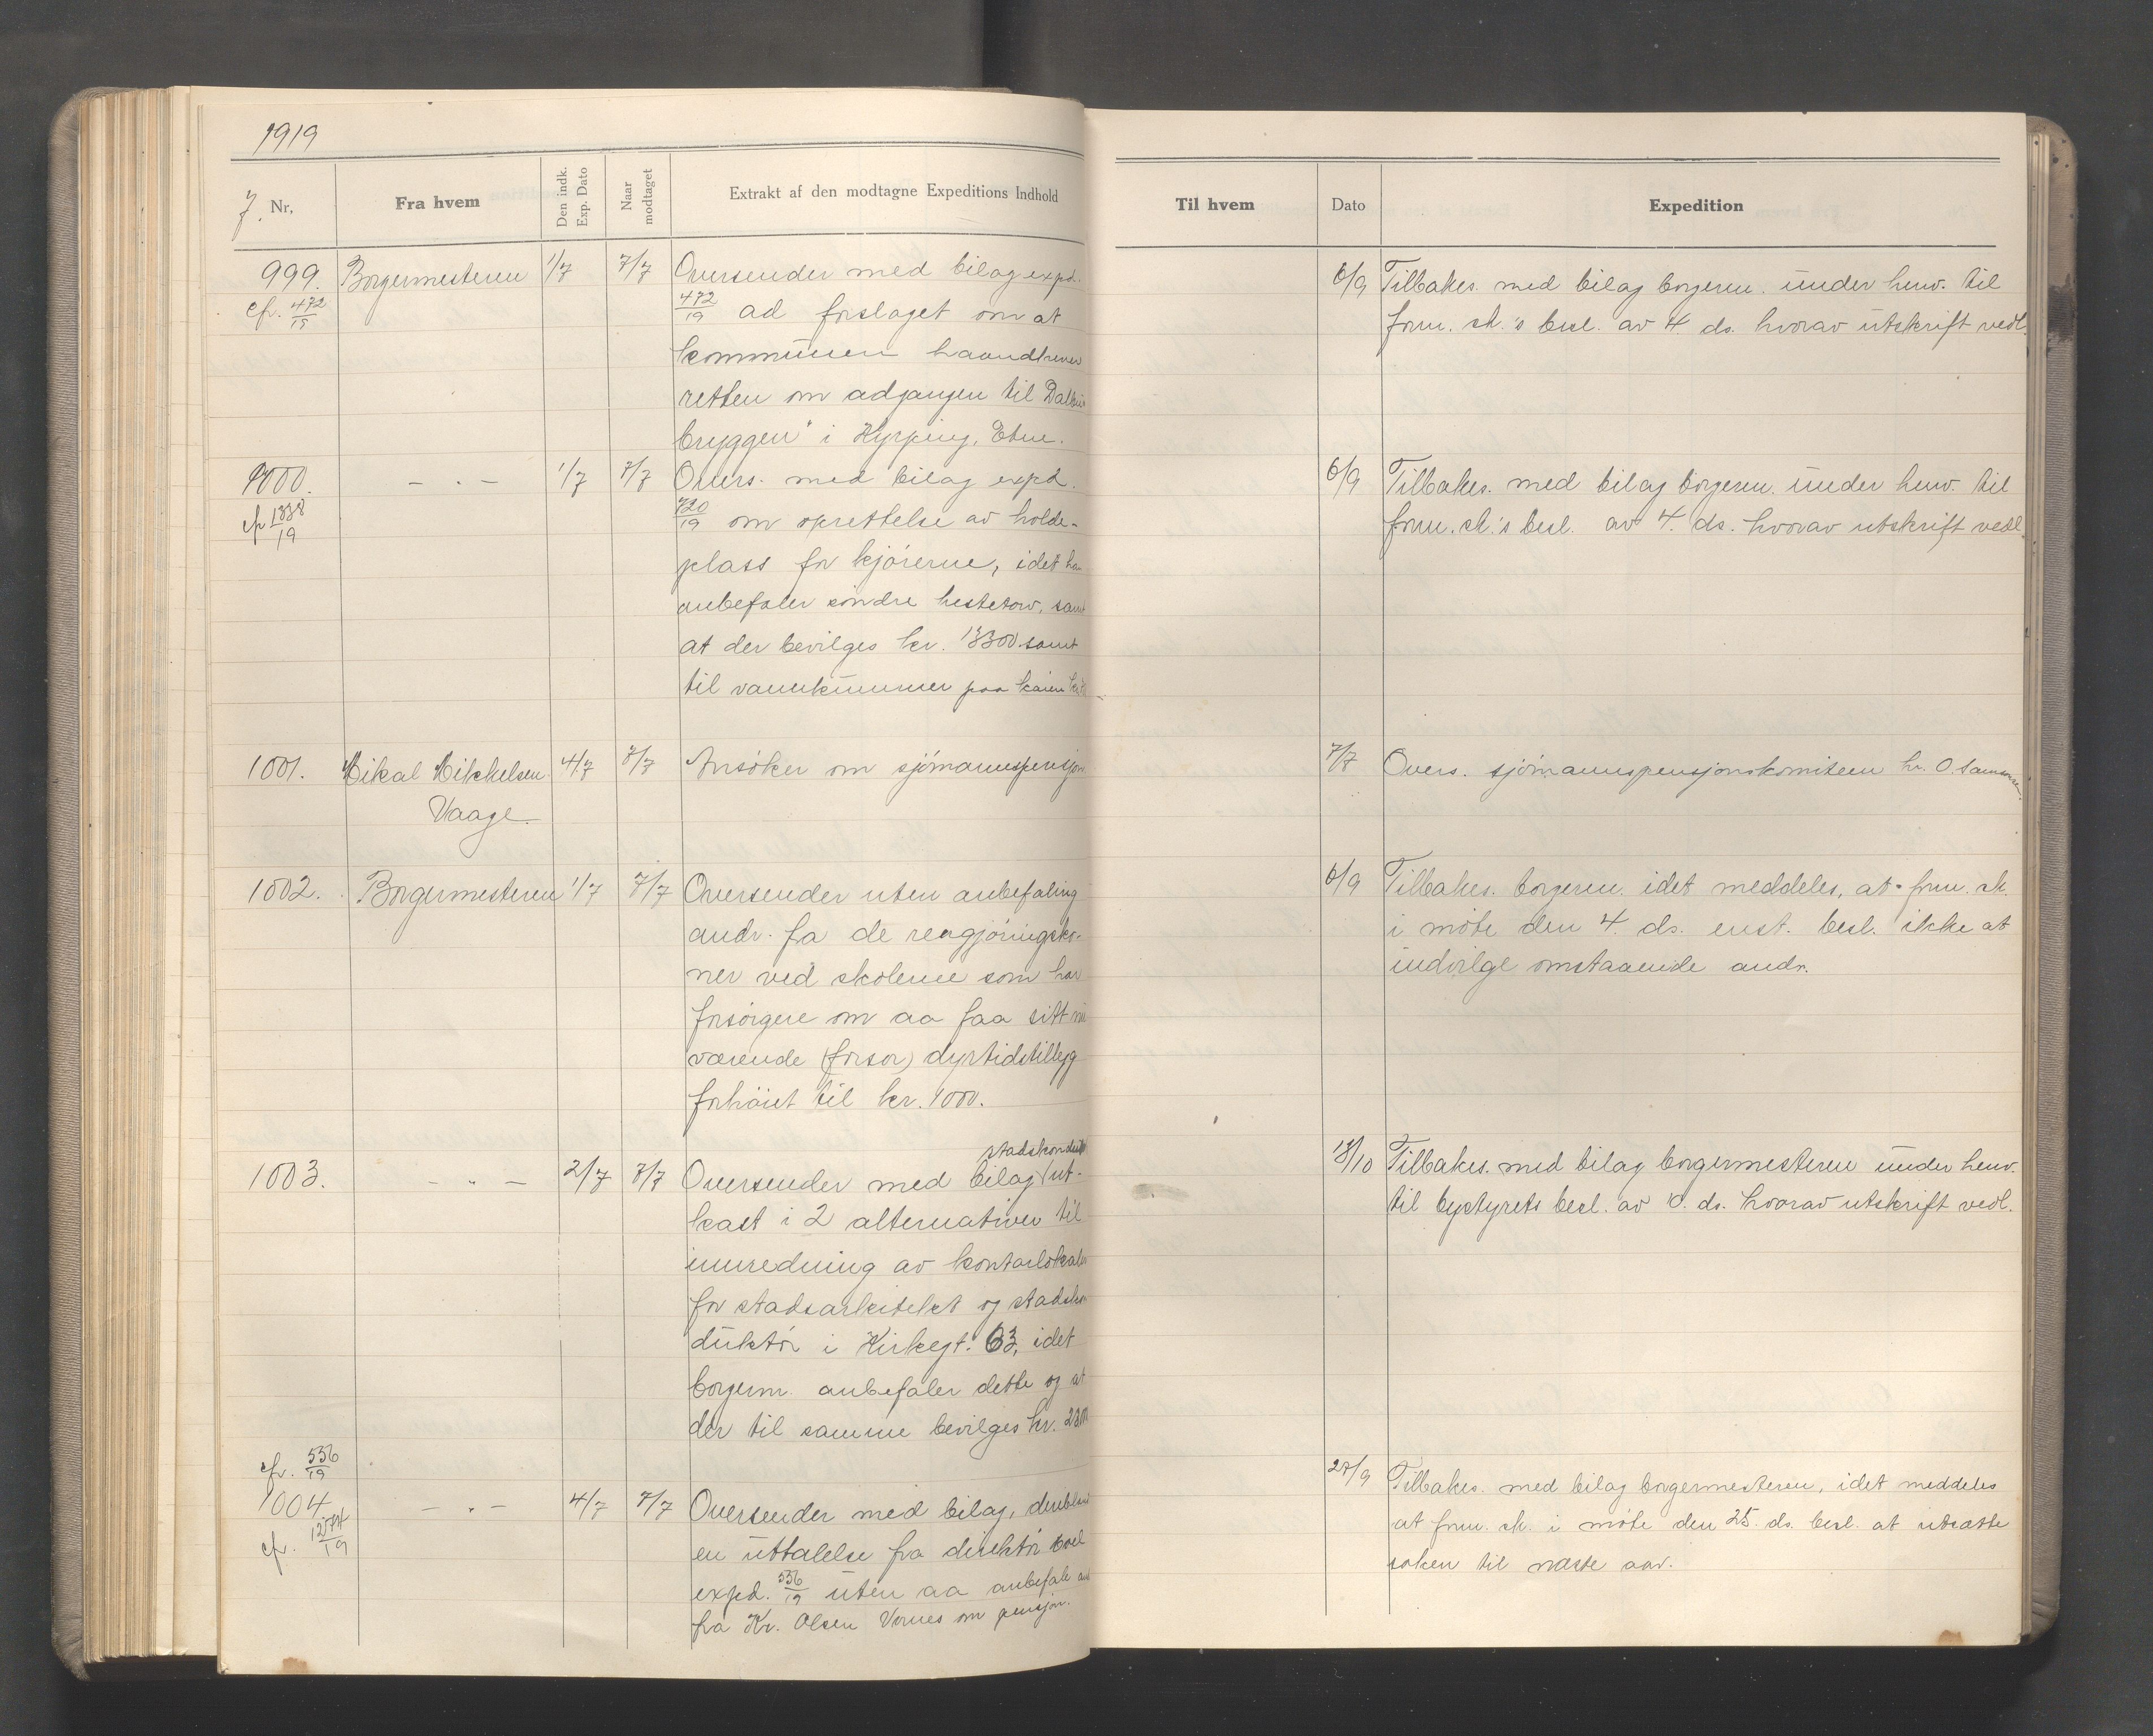 1919
J. Nr,
Fra hvem
Den indk. Exp. Dato
Naar modtaget
Extrakt af den modtagne Expeditions Indhold
999. Borgermesteren 1/7 7/7 Oversender med bilag expd.
cfr. 472/19
472/19 ad forslaget om at
kommunen haandhever
retten om adgangen til
bryggen" i Kyrping, Etne.
1000. - " - 1/7 7/7 Overs. med bilag expd.
cfr 1338/19
720/19 om oprettelse av holde-
plass for kjörerne, idet han
anbefaler söndre hestetorv, samt
at der bevilges kr. samt
til paa kaien
1001. Mikal Mikkelsen 4/7 7/7 Ansöker om sjömannspensjon
Vaage
1002. Borgermesteren 1/7 7/7 Oversender uten anbefaling
andr. fa de rengjöringsko-
ner ved skolerne som har
forsörgere om aa faa sitt nu
værende (forsor) dyrtidstillegg
forhöiet til kr. 1000.
stadskondukt
1003. - " - 2/7 7/7 Oversender med bilag ut-
kast i 2 alternativer til
innredning av kontorlokaler
for stadsarkitekt og stadskon
duktör i Kirkegt. 63, idet
borgerm. anbefaler dette og at
der til samme bevilges kr.
cfr. 536/19
1004 - " - 4/7 7/7 Oversender med bilag, deriblant
cfr. 1277/19
en uttalelse fra direktör
expd. 536/19 uten aa anbefale and
fra Kr. Olsen Vornes om pensjon.
Til hvem
Dato
Expedition
6/9 Tilbakes. med bilag borgerm. under henv. til
form. sk.'s besl. av 4 ds. hvorav utskrift vedl.
6/9 Tilbakes. med bilag borgerm. under henv. til
form. sk.'s besl. av 4. ds. hvorav utskrift vedl.
7/7 Overs. sjömannspensjonskomiteen hr. O. Samsonsen.
6/9 Tilbakes. borgerm. idet meddeles, at form. sk.
i möte den 4. ds. enst. besl. ikke at
indvilge omstaaende andr.
13/10 Tilbakes. med bilag borgermesteren under henv.
til bystyrets besl. av ds. hvorav utskrift vedl.
27/9 Tilbakes. med bilag borgermesteren, idet meddeles
at form. sk. i möte den 25. ds. besl. at utsætte
saken til næste aar.